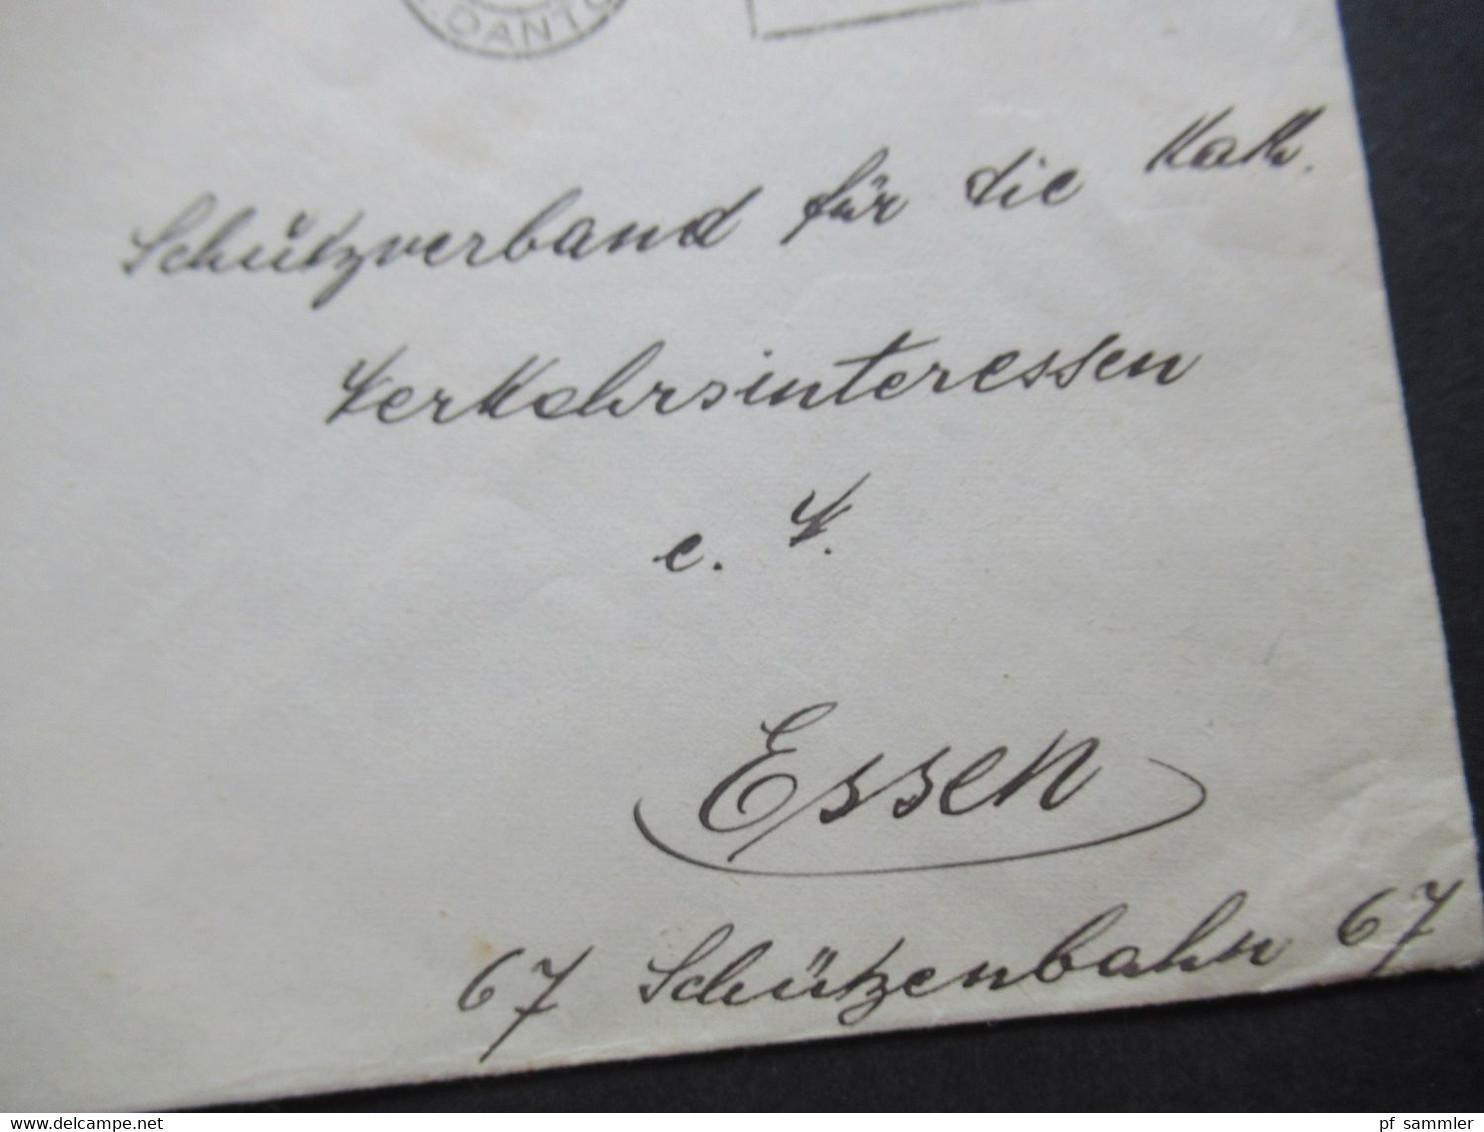 . DANTO
Schützverband für die Kath.
Verkehrsinteressen
e. V.
Essen
67 Schützenbahn 67
pf_sammler